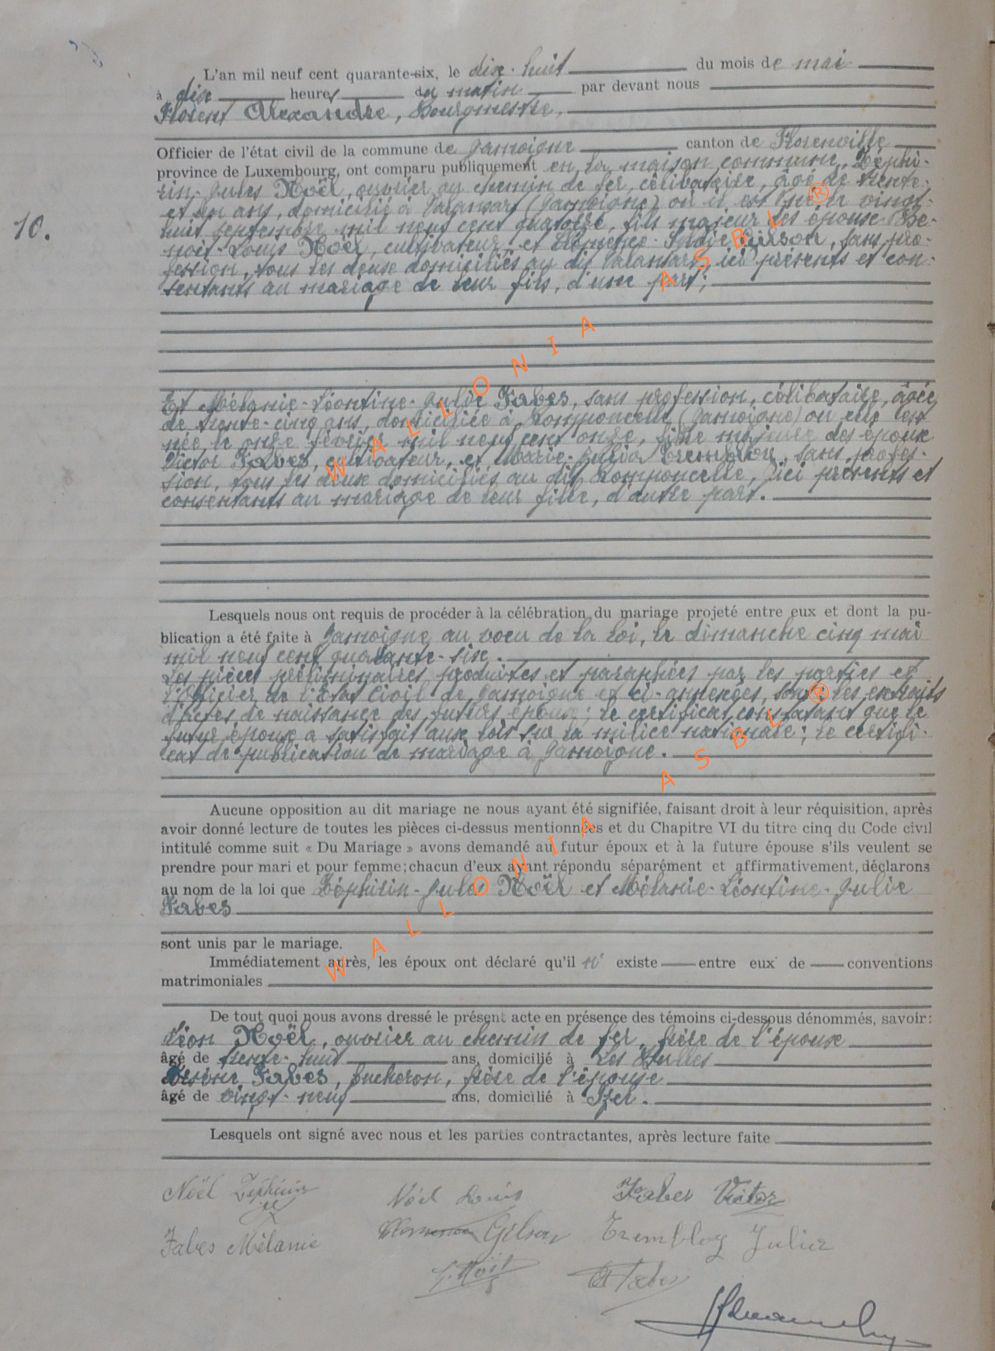 L'an mil neuf cent quarante-six, le dix-huit du mois de mai
à dix heures du matin par devant nous
Florent Alexandre, Bourgmestre,
Officier de l'état civil de la commune de Jamoigne canton de Florenville
province de Luxembourg, ont comparu publiquement en la maison commune, Zéphi-
rin-Jules Noël, ouvrier au chemin de fer, célibataire, âgé de trente-
et un ans, domicilié à Valansart (Jamoigne) où il est né le vingt-
huit septembre mil neuf cent quatorze, fils majeur des époux Be-
noit-Louis Noël, cultivateur, et Clémence Gilson, sans pro-
fession, tous les deux domiciliés au dit Valansart, ici présents et con-
sentants au mariage de leur fils, d'une part;
10.
Et Mélanie-Léontine-Julie Fabes, sans profession, célibataire, âgée
de trente-cinq ans, domiciliée à Romponcelle (Jamoigne) où elle est
née le onze février mil neuf cent onze, fille majeure des époux
Victor Fabes, cultivateur, et Marie-Julie Trembloy, sans profes-
sion, tous les deux domiciliés au dit Romponcelle, ici présents et
consentants au mariage de leur fille, d'autre part.
Lesquels nous ont requis de procéder à la célébration du mariage projeté entre eux et dont la pu-
blication a été faite à Jamoigne au vœu de la loi, le dimanche cinq mai
mil neuf cent quarante-six.
Les pièces préliminaires produites et paraphées par les parties et
l'Officier de l'Etat Civil de Jamoigne et ci-annexées, sont les extraits
d'actes de naissance des futurs époux; le certificat constatant que le
futur époux a satisfait aux lois sur la milice nationale; le certifi-
cat de publication de mariage à Jamoigne.
Aucune opposition au dit mariage ne nous ayant été signifiée, faisant droit à leur réquisition, après
avoir donné lecture de toutes les pièces ci-dessus mentionnées et du Chapitre VI du titre cinq du Code civil
intitulé comme suit « Du Mariage » avons demandé au futur époux et à la future épouse s'ils veulent se
prendre pour mari et pour femme; chacun d'eux ayant répondu séparément et affirmativement, déclarons
au nom de la loi que Zéphirin-Jules Noël et Mélanie-Léontine-Julie
Fabes
sont unis par le mariage.
Immédiatement après, les époux ont déclaré qu'il n' existe entre eux de conventions
matrimoniales
De tout quoi nous avons dressé le présent acte en présence des témoins ci-dessous dénommés, savoir:
Léon Noël, ouvrier au chemin de fer, frère de l'époux
âgé de trente-huit ans, domicilié à Les Bulles
Fabes, bucheron, frère de l'épouse
âgé de vingt-neuf ans, domicilié à Izel.
Lesquels ont signé avec nous et les parties contractantes, après lecture faite
Noël Zéphirin Noël Louis Fabes Victor
Fabes Mélanie Gilson Trembloy Julie
L. Noël Fabes
WALLONIA ASBL ®
WALLONIA ASBL ®